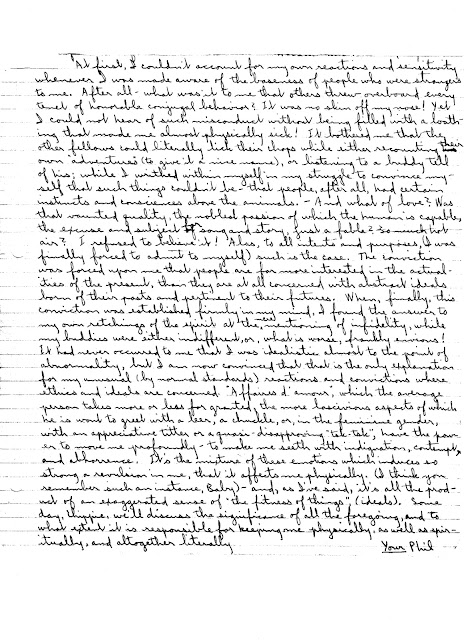 At first, I couldn't account for my own reactions and sensitivity
whenever I was made aware of the baseness of people who were strangers
to me. After all - what was it to me that others threw overboard every
tenet of honorable conjugal behavior? It was no skin off my nose! Yet
I could not hear of such misconduct without being filled with a loath-
ing that made me almost physically sick! It bothered me that the
other fellows could literally lick their chops while either recounting their
own "adventures" (to give it a nice name), or listening to a buddy tell
of his; while I writhed within myself in my struggle to convince my-
self that such things couldn't be - that people, after all, had certain
instincts and consciences above the animals. - And what of love? Was
that vaunted quality, the noblest passion of which the human is capable,
the excuse and subject of song and story, just a fable? So much hot
air? I refused to believe it! Alas, to all intents and purposes, (I was
finally forced to admit to myself) such is the case. The conviction
was forced upon me that people are far more interested in the actual-
ities of the present, than they are at all concerned with abstract ideals
born of their pasts and pertinent to their futures. When, finally, this
conviction was established firmly in my mind, I found the answer to
my own retchings of the spirit at the mere mentioning of infidelity, while
my buddies were either indifferent, or, what is worse, frankly envious!
It had never occurred to me that I was idealistic almost to the point of
abnormality, but I am now convinced that that is the only explanation
for my unusual (by normal standards) reactions and convictions where
ethics and ideals are concerned. "Affaires d'amour", which the average
person takes more or less for granted, the more lascivious aspects of which
he is wont to greet with a leer, a chuckle, or, in the feminine gender,
with an appreciative titter or a quasi-disapproving "tsk-tsk", have the pow-
er to move me profoundly - to make me seethe with indignation, contempt,
and abhorrence. It's the mixture of these emotions which induces so
strong a revulsion in me, that it affects me physically. (I think you
remember such an instance, Baby) - and, as I've said, it's all the prod-
uct of an exaggerated sense of "the fitness of things", (ideals). Some
day, chippie, we'll discuss the significance of all the foregoing, and to
what extent it is responsible for keeping me physically, as well as spir-
itually, and altogether literally
Your Phil